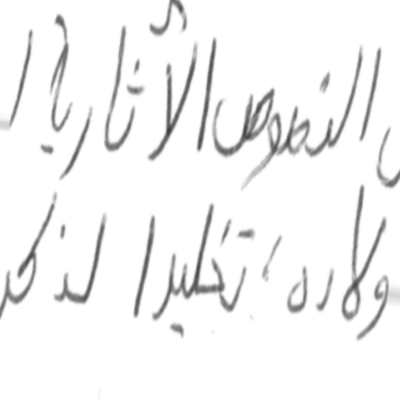 النصوص الآثارية
ولاده، تخليدا لذكر